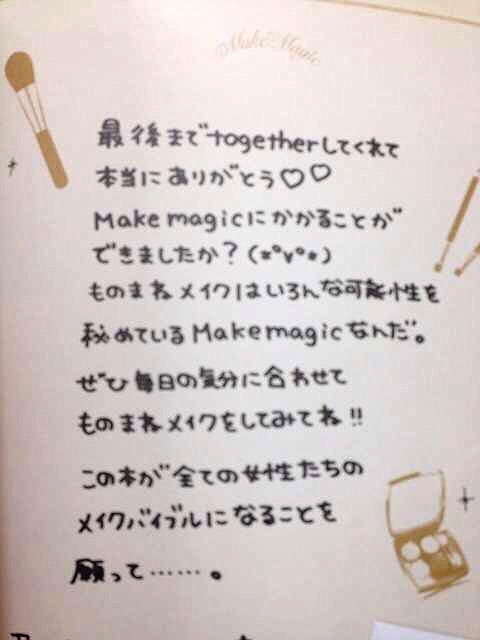 Make Magic
最後までtogetherしてくれて
本当にありがとう♡♡
Make magicにかかることが
できましたか？(*°v°*)
ものまねメイクはいろんな可能性を
秘めているMake magicなんだ。
ぜひ毎日の気分に合わせて
ものまねメイクをしてみてね!!
この本が全ての女性たちの
メイクバイブルになることを
願って……。